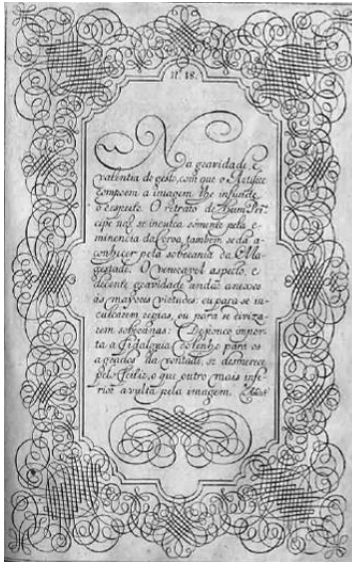 N.º 18.
Na gravidade, e
valentia do gesto, com que o Artifice
compoem a imagem lhe infunde
o respeito. O retrato de hum Prí-
cipe naõ se inculca sómente pela e-
minencia da croa, tambem se dá a
conhecer pela soberania da Ma-
gestade. O veneravel aspecto, e
decente gravidade andaõ anexos
ás mayores virtudes: ou para se in-
culcarem regias, ou para se
rem soberanas: Depouco impor-
ta a Fidalguia do lenho para os
agrados da vontade, se desmerece
pelo feitiø, o que outro mais infe-
rior avulta pela imagem.